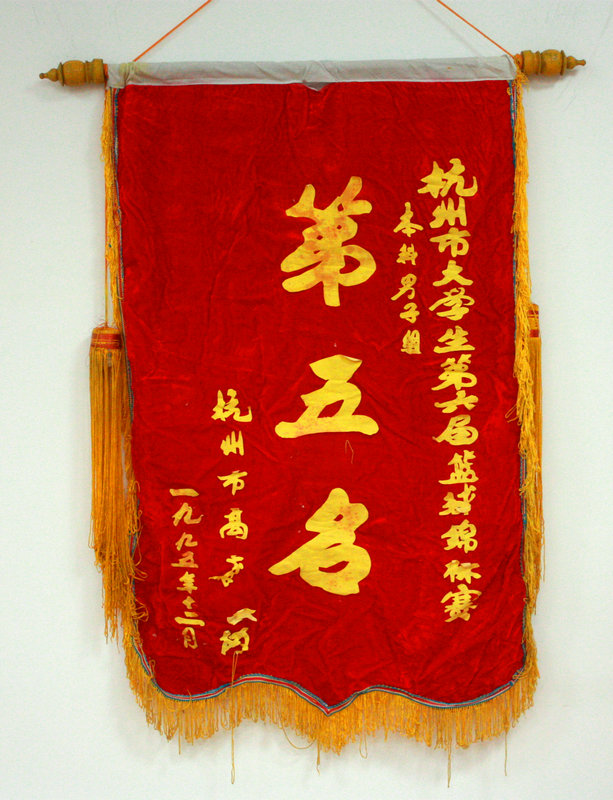 杭州市大学生第六届篮球锦标赛
本科男子组
第五名
杭州市高
一九九五年十二月